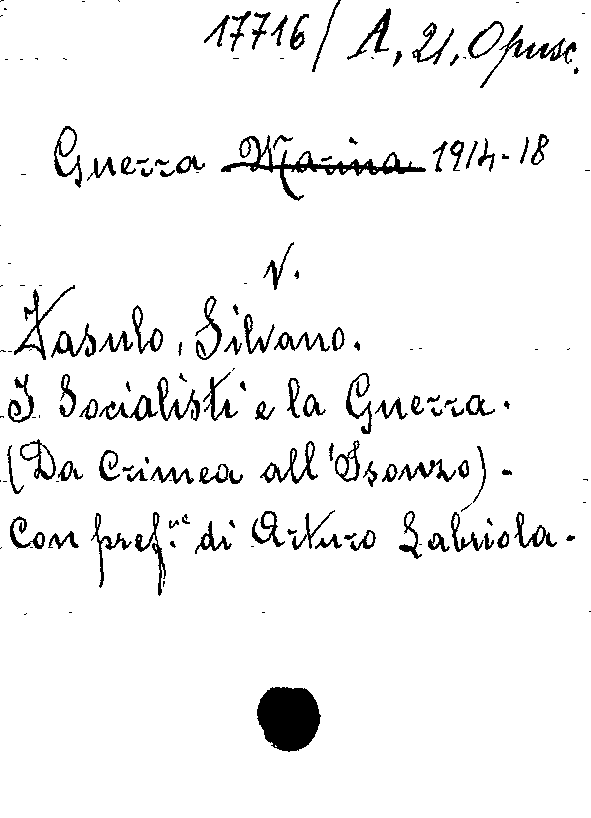 17716/ A, 21, Opusc.
Guerra Marina 1914-18
V.
Fasulo, Silvano.
I Socialisti e la Guerra.
(Da Crimea all'Isonzo).
Con pref.ne di Arturo Labriola.